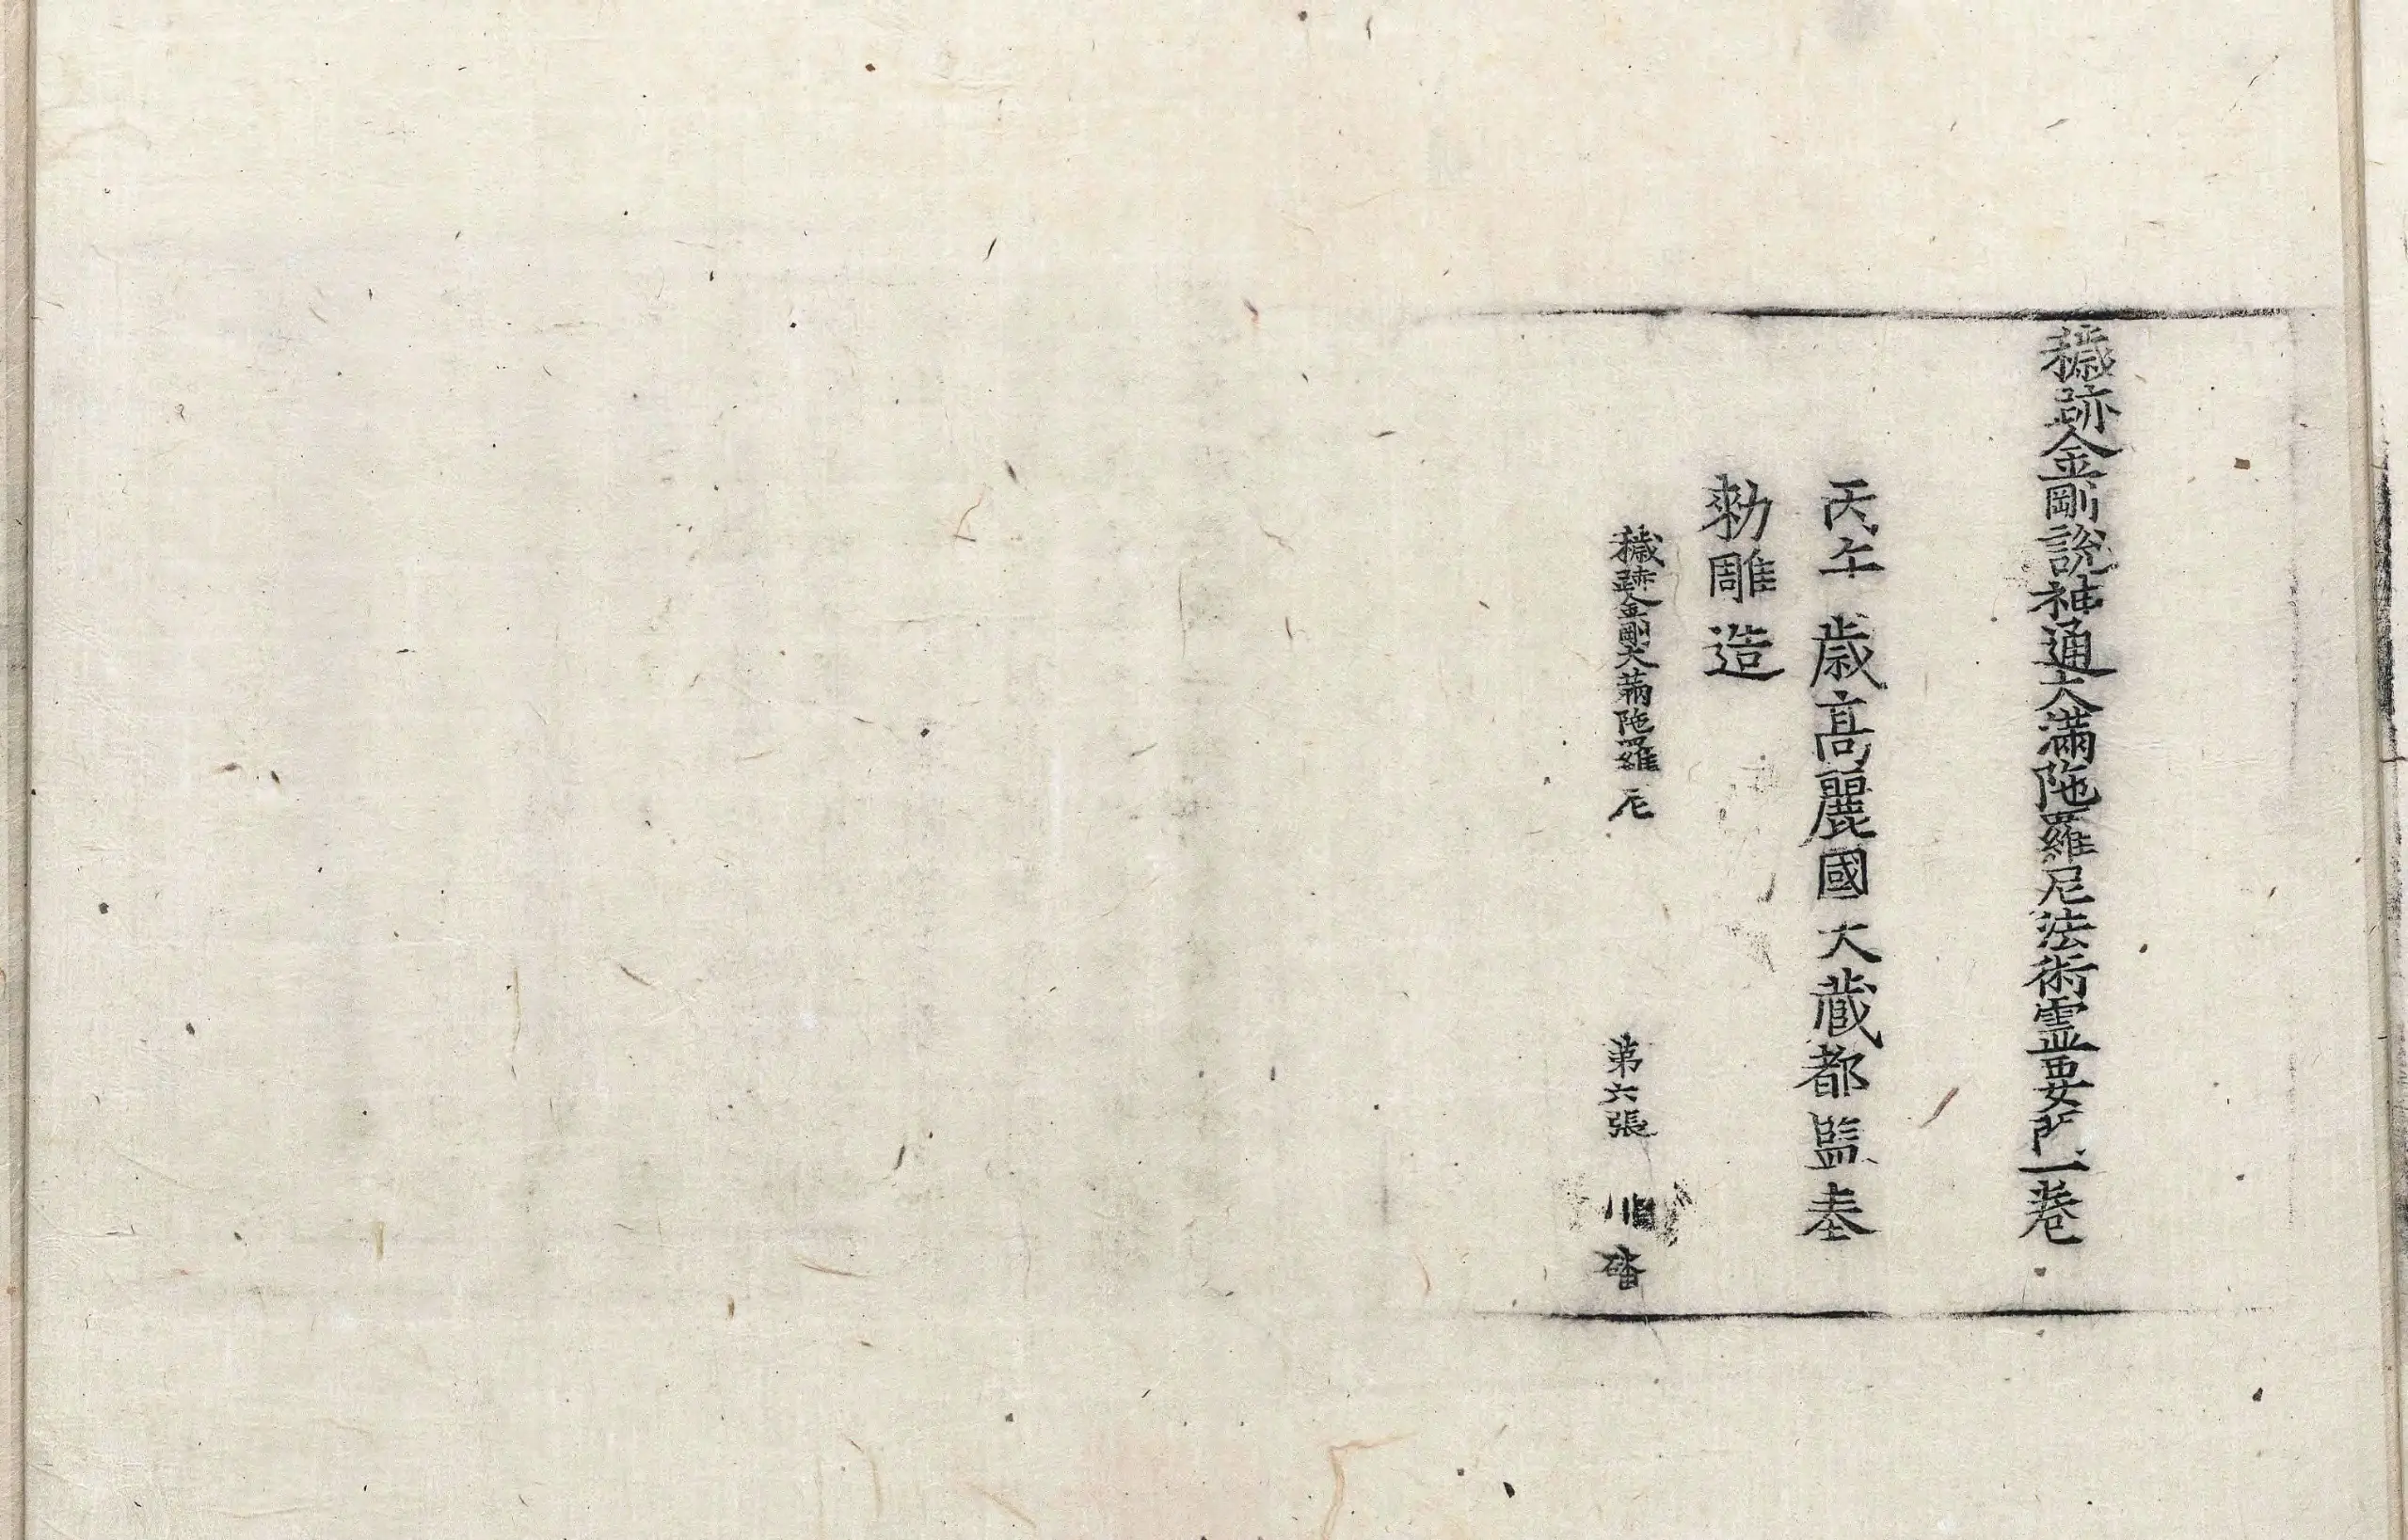 穢跡金剛說神通大滿陁羅尼法術霊要門一卷
丙午歲高麗國大藏都監奉
勑雕造
穢跡金剛大萳陁羅尼 第六張